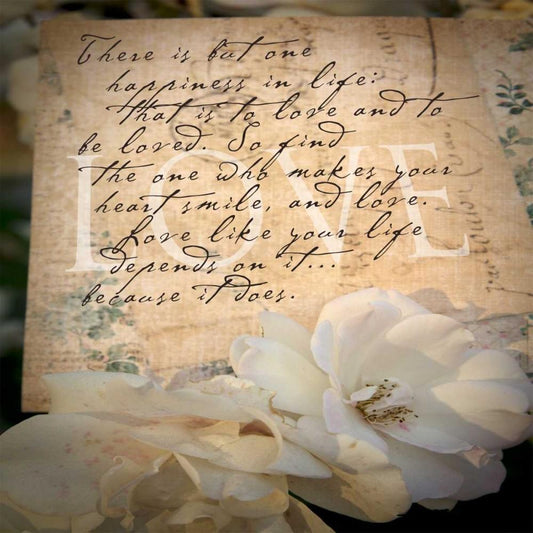 There is but one
happiness in life:
that is to love and to
be loved. So find
the one who makes your
heart smile, and love.
Love like your life
depends on it...
because it does.
LOVE